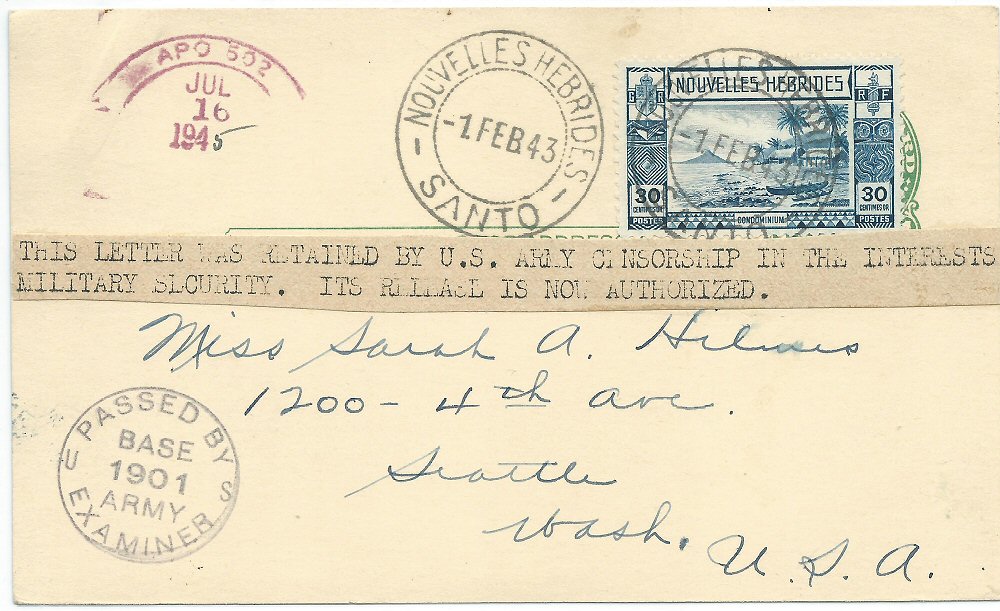 APO 502
JUL
16
1945
NOUVELLES HEBRIDES
-1.FEB.43
SANTO
NOUVELLES HEBRIDES
GR
RF
30
CENTIMES OR
POSTES
CONDOMINIUM
30
CENTIMES OR
POSTES
NOUVELLES HEBRIDES
-1.FEB.43
SANTO
THIS LETTER WAS RETAINED BY U.S. ARMY CENSORSHIP IN THE INTERESTS
MILITARY SECURITY. ITS RELEASE IS NOW AUTHORIZED.
Miss Sarah A. Hilmes
1200 - 4th Ave.
Seattle
Wash.
U.S.A.
PASSED BY
BASE
1901
ARMY
U S
EXAMINER